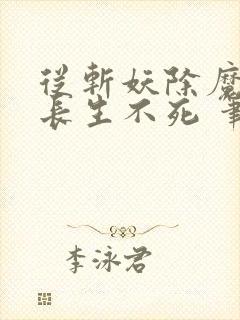 從斬妖除魔
長生不死
李泳君